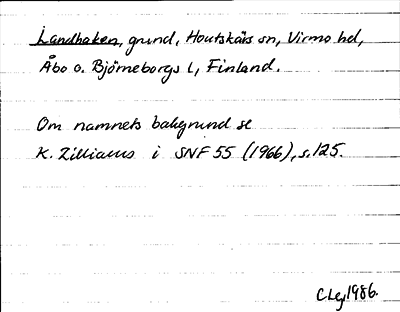 Landhaken, grund, Houtskärs sn, Virmo hd,
Åbo o. Björneborgs l, Finland.
Om namnets bakgrund se
K. Zilliacus i SNF 55 (1966), s. 125.
CLej 1986.